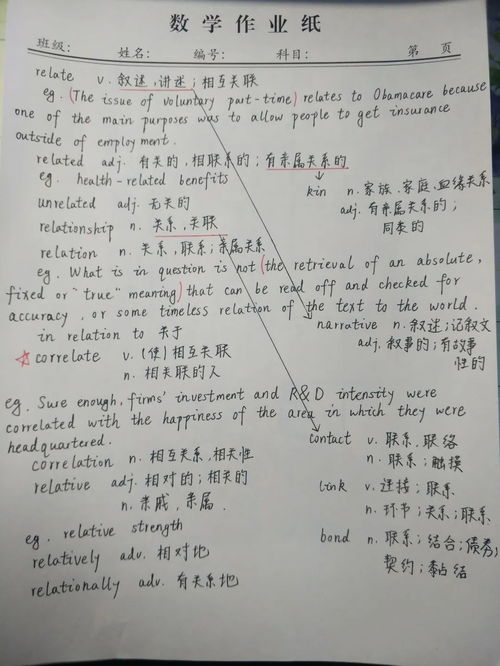 数学作业纸
班级: 姓名: 编号: 科目: 第 页
relate v. 叙述,讲述;相互关联
eg. (The issue of voluntary part-time) relates to Obamacare because
one of the main purposes was to allow people to get insurance
outside of employment.
related adj. 有关的,相联系的;有亲属关系的
eg. health-related benefits
kin n. 家族、家庭、血缘关系
adj. 有亲属关系的;
同类的
unrelated adj. 无关的
relationship n. 关系,关联
relation n. 关系,联系;亲属关系
eg. What is in question is not (the retrieval of an absolute,
fixed or "true" meaning) that can be read off and checked for
accuracy, or some timeless relation of the text to the world.
in relation to 关于
narrative n. 叙述;记叙文
adj. 叙事的;有故事
性的
☆ correlate v. (使)相互关联
n. 相关联的人
eg. Sure enough, firms' investment and R&D intensity were
correlated with the happiness of the area in which they were
headquartered.
correlation n. 相互关系,相关性
relative adj. 相对的;相关的
n. 亲戚,亲属.
eg. relative strength
relatively adv. 相对地
relationally adv. 有关系地
contact v. 联系,联络
n. 联系;触摸
link v. 连接;联系
n. 环节;关系;联系
bond n. 联系;结合;债券;
契约;黏结